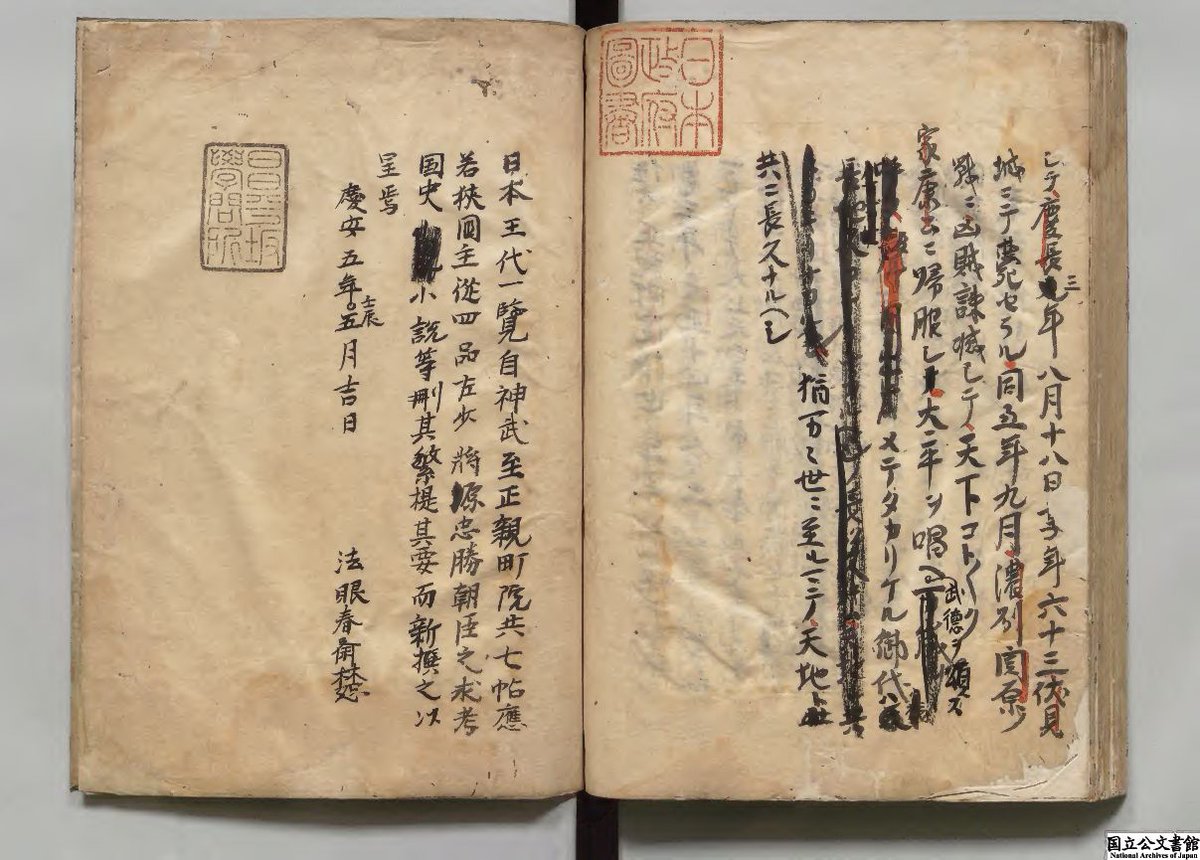 シテ慶長三年八月十八日ニ年六十三伏見
城ニテ薨セラル同五年九月濃州関原ノ
戦ニ凶賊誅滅シテ天下コト〱ク
家康公ニ帰服シ大平ヲ唱ヘ武徳ヲ頌ス
メテタカリケル御代
猶万々世ニ至ルマテ天地ト
共ニ長久ナルヘシ
日本政府圖書
日本王代一覧自神武至正親町院共七帖應
若狹國主從四品左少將源忠勝朝臣之求考
国史小説等刪其繁提其要而新撰之以
呈焉
慶安五年壬辰五月吉日
法眼春斎林恕
昌平坂學問所
国立公文書館
National Archives of Japan